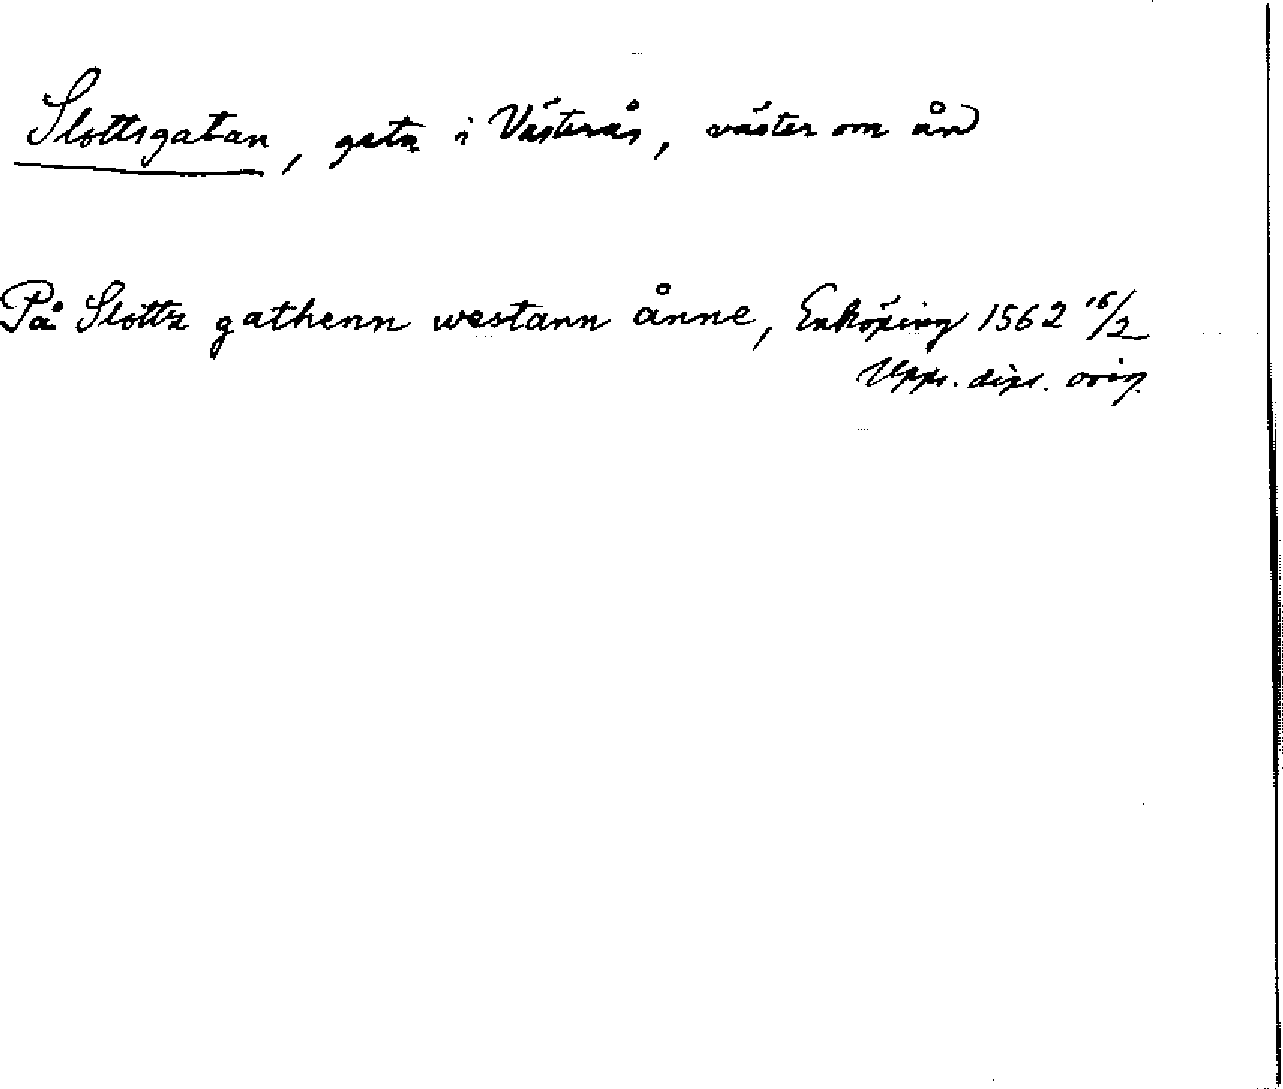 Slottsgatan, gata i Västerås, väster om ån
På Slottz gathenn westann ånne, Enköping 1562 16/2
Upps. dipl. orig.